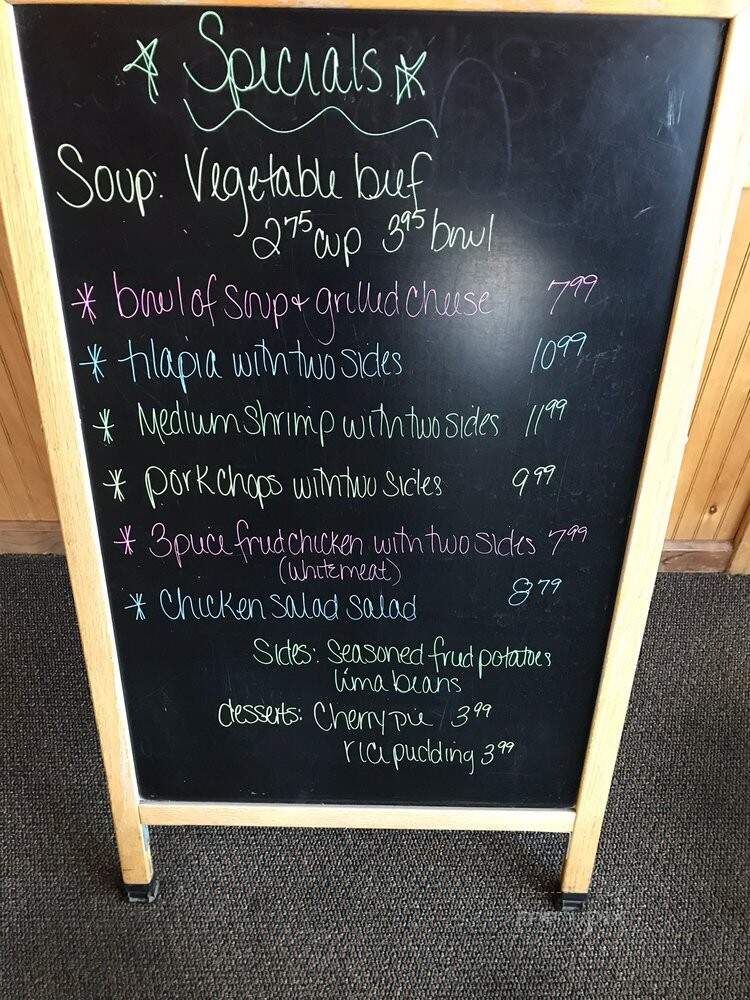 Specials
Soup: Vegetable beef
2.75 cup 3.95 bowl
* bowl of soup + grilled cheese 7.99
* tilapia with two sides 10.99
* Medium Shrimp with two sides 11.99
* pork chops with two sides 9.99
* 3 piece fried chicken with two sides 7.99
(white meat)
* Chicken salad salad 8.79
Sides: Seasoned fried potatoes
lima beans
desserts: Cherry pie 3.99
rice pudding 3.99